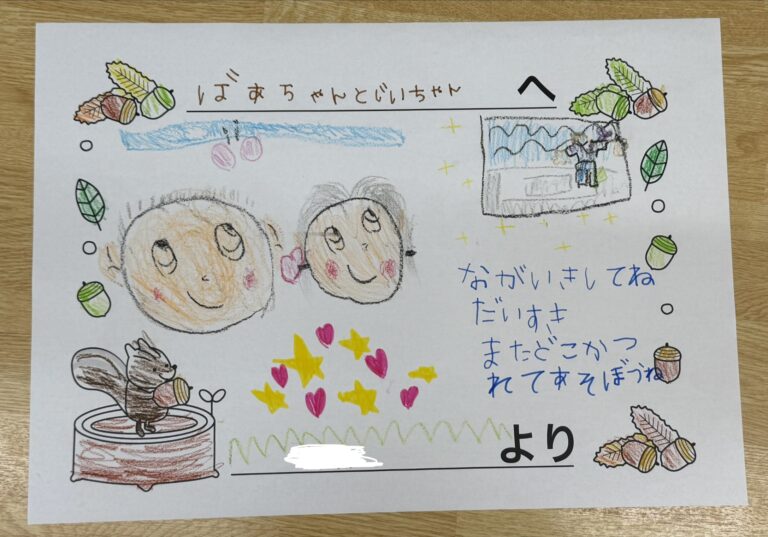 ばあちゃんとじいちゃん へ
ながいきしてね
だいすき
またどこかつ
れてあそぼうね
より